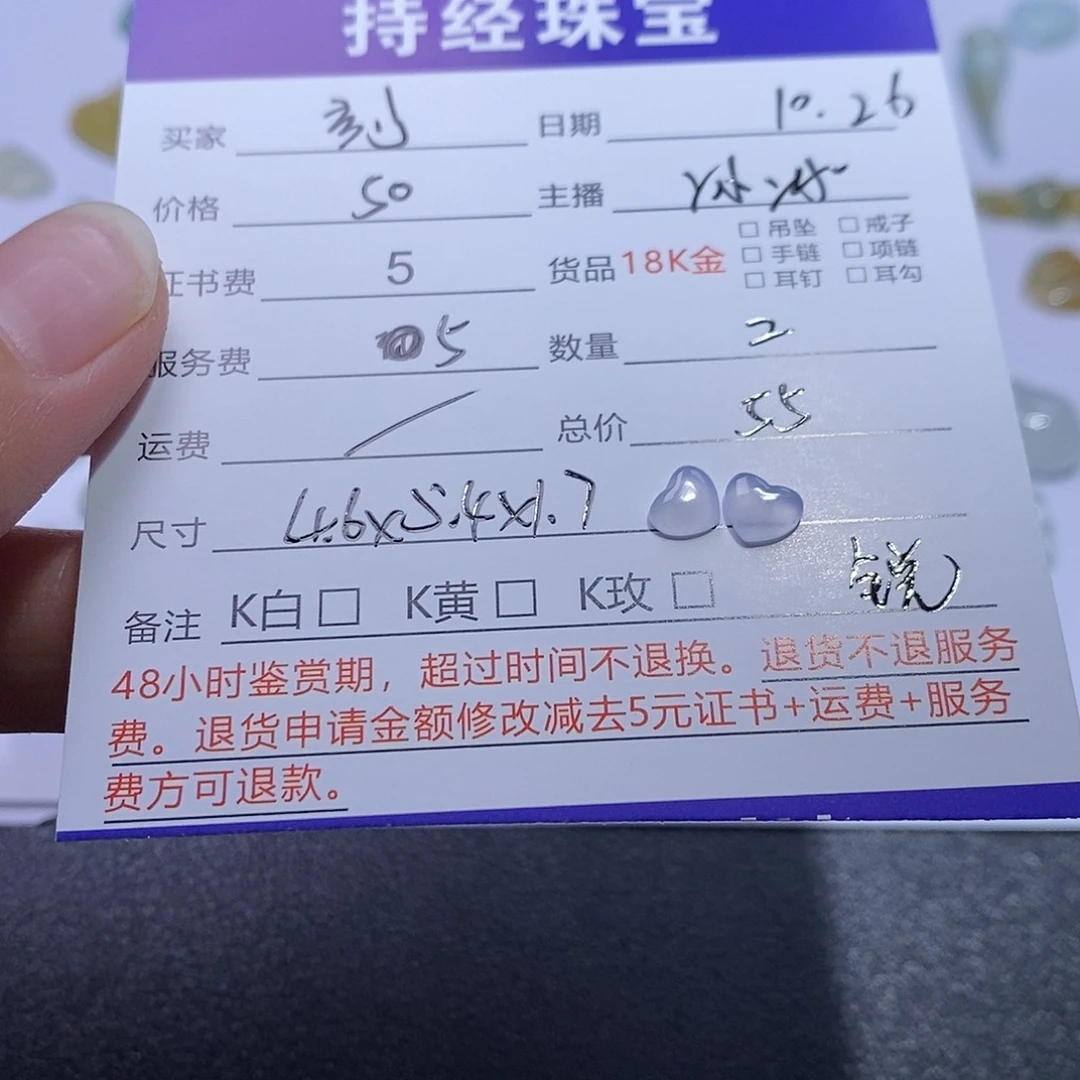 持经珠宝
买家 刘 日期 10.26
价格 50 主播
证书费 5 货品 18K金 □ 吊坠 □ 戒子
□ 手链 □ 项链
□ 耳钉 □ 耳勾
服务费 5 数量 2
运费 / 总价 55
尺寸 4.6x5.4x1.7
备注 K白 □ K黄 □ K玫 □
48小时鉴赏期，超过时间不退换。退货不退服务
费。退货申请金额修改减去5元证书+运费+服务
费方可退款。